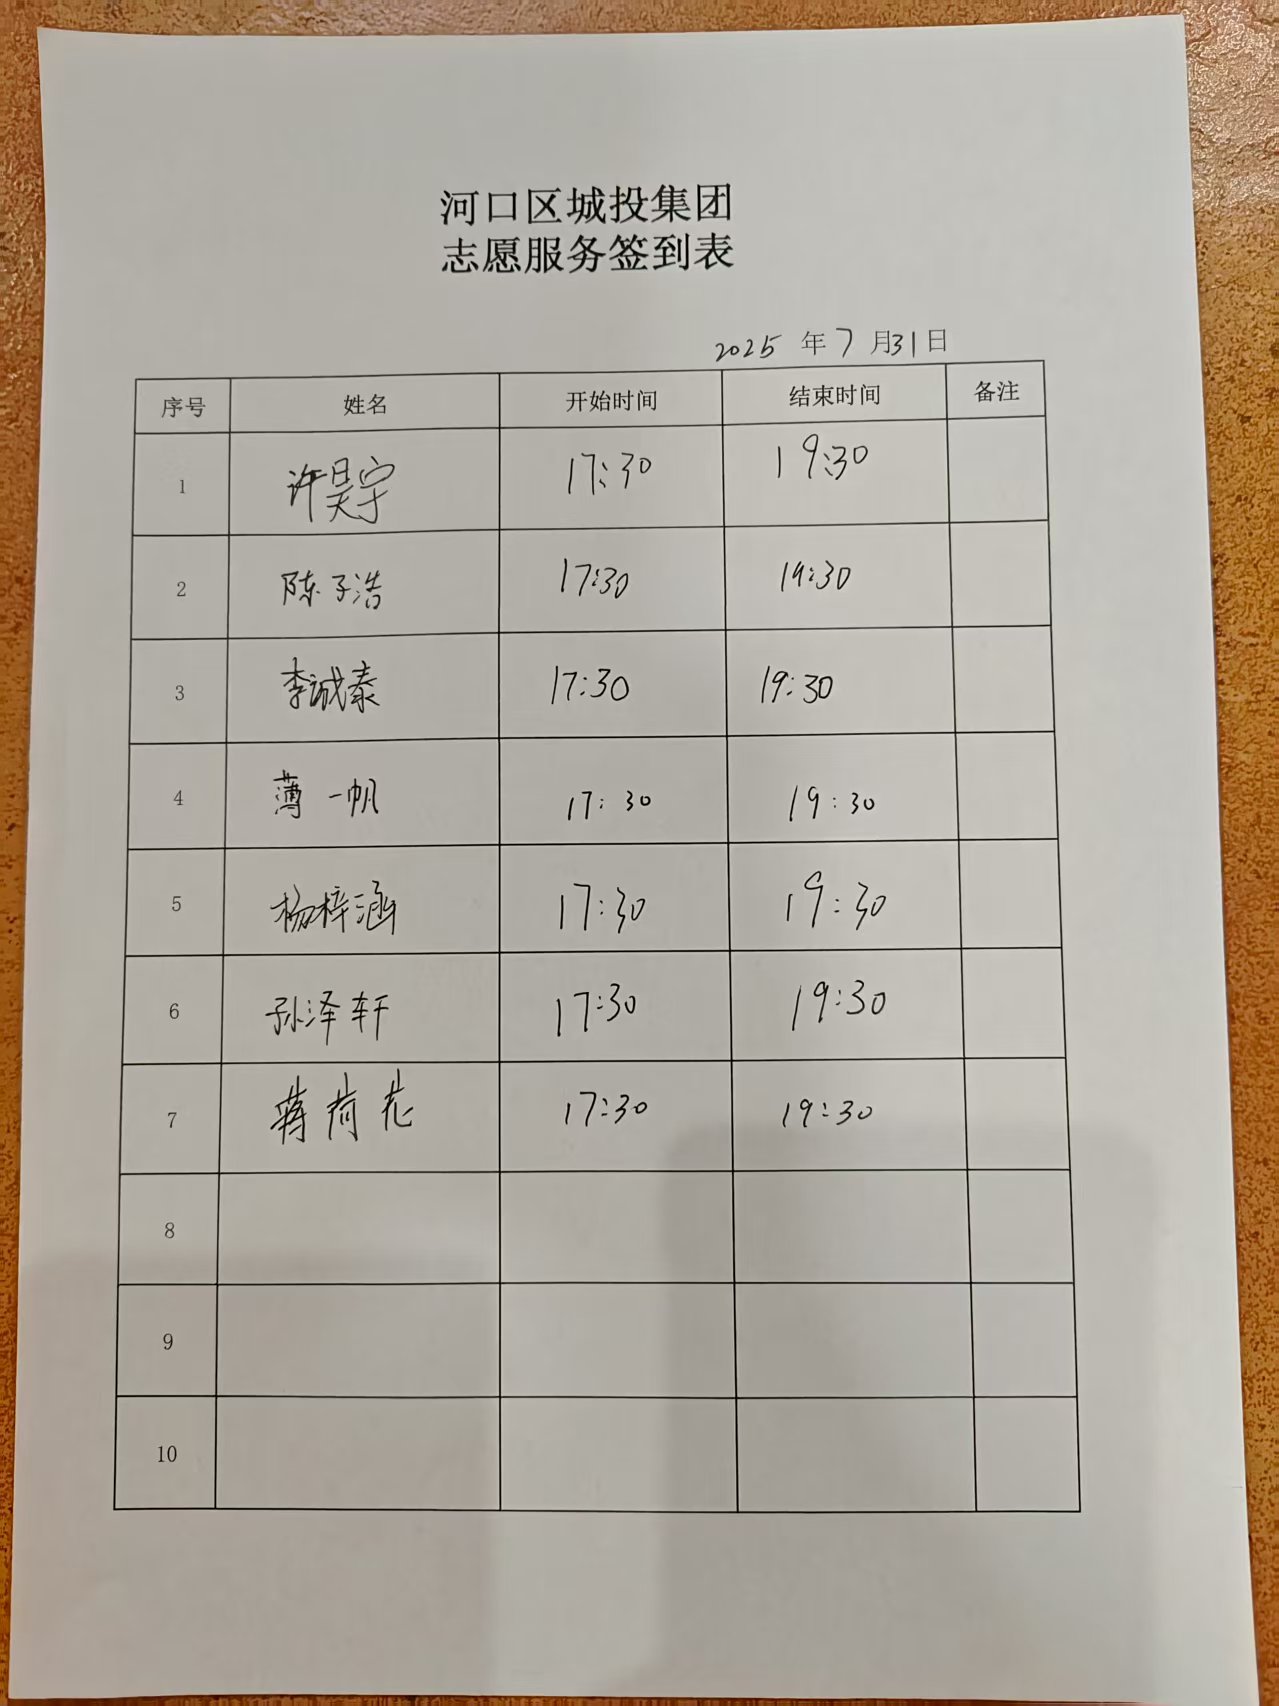 河口区城投集团
志愿服务签到表
2025 年 7 月 31 日
序号 姓名 开始时间 结束时间 备注
1 许昊宇 17:30 19:30
2 陈子浩 17:30 19:30
3 李诚泰 17:30 19:30
4 薄一帆 17:30 19:30
5 杨梓涵 17:30 19:30
6 孙泽轩 17:30 19:30
7 蒋荷花 17:30 19:30
8
9
10